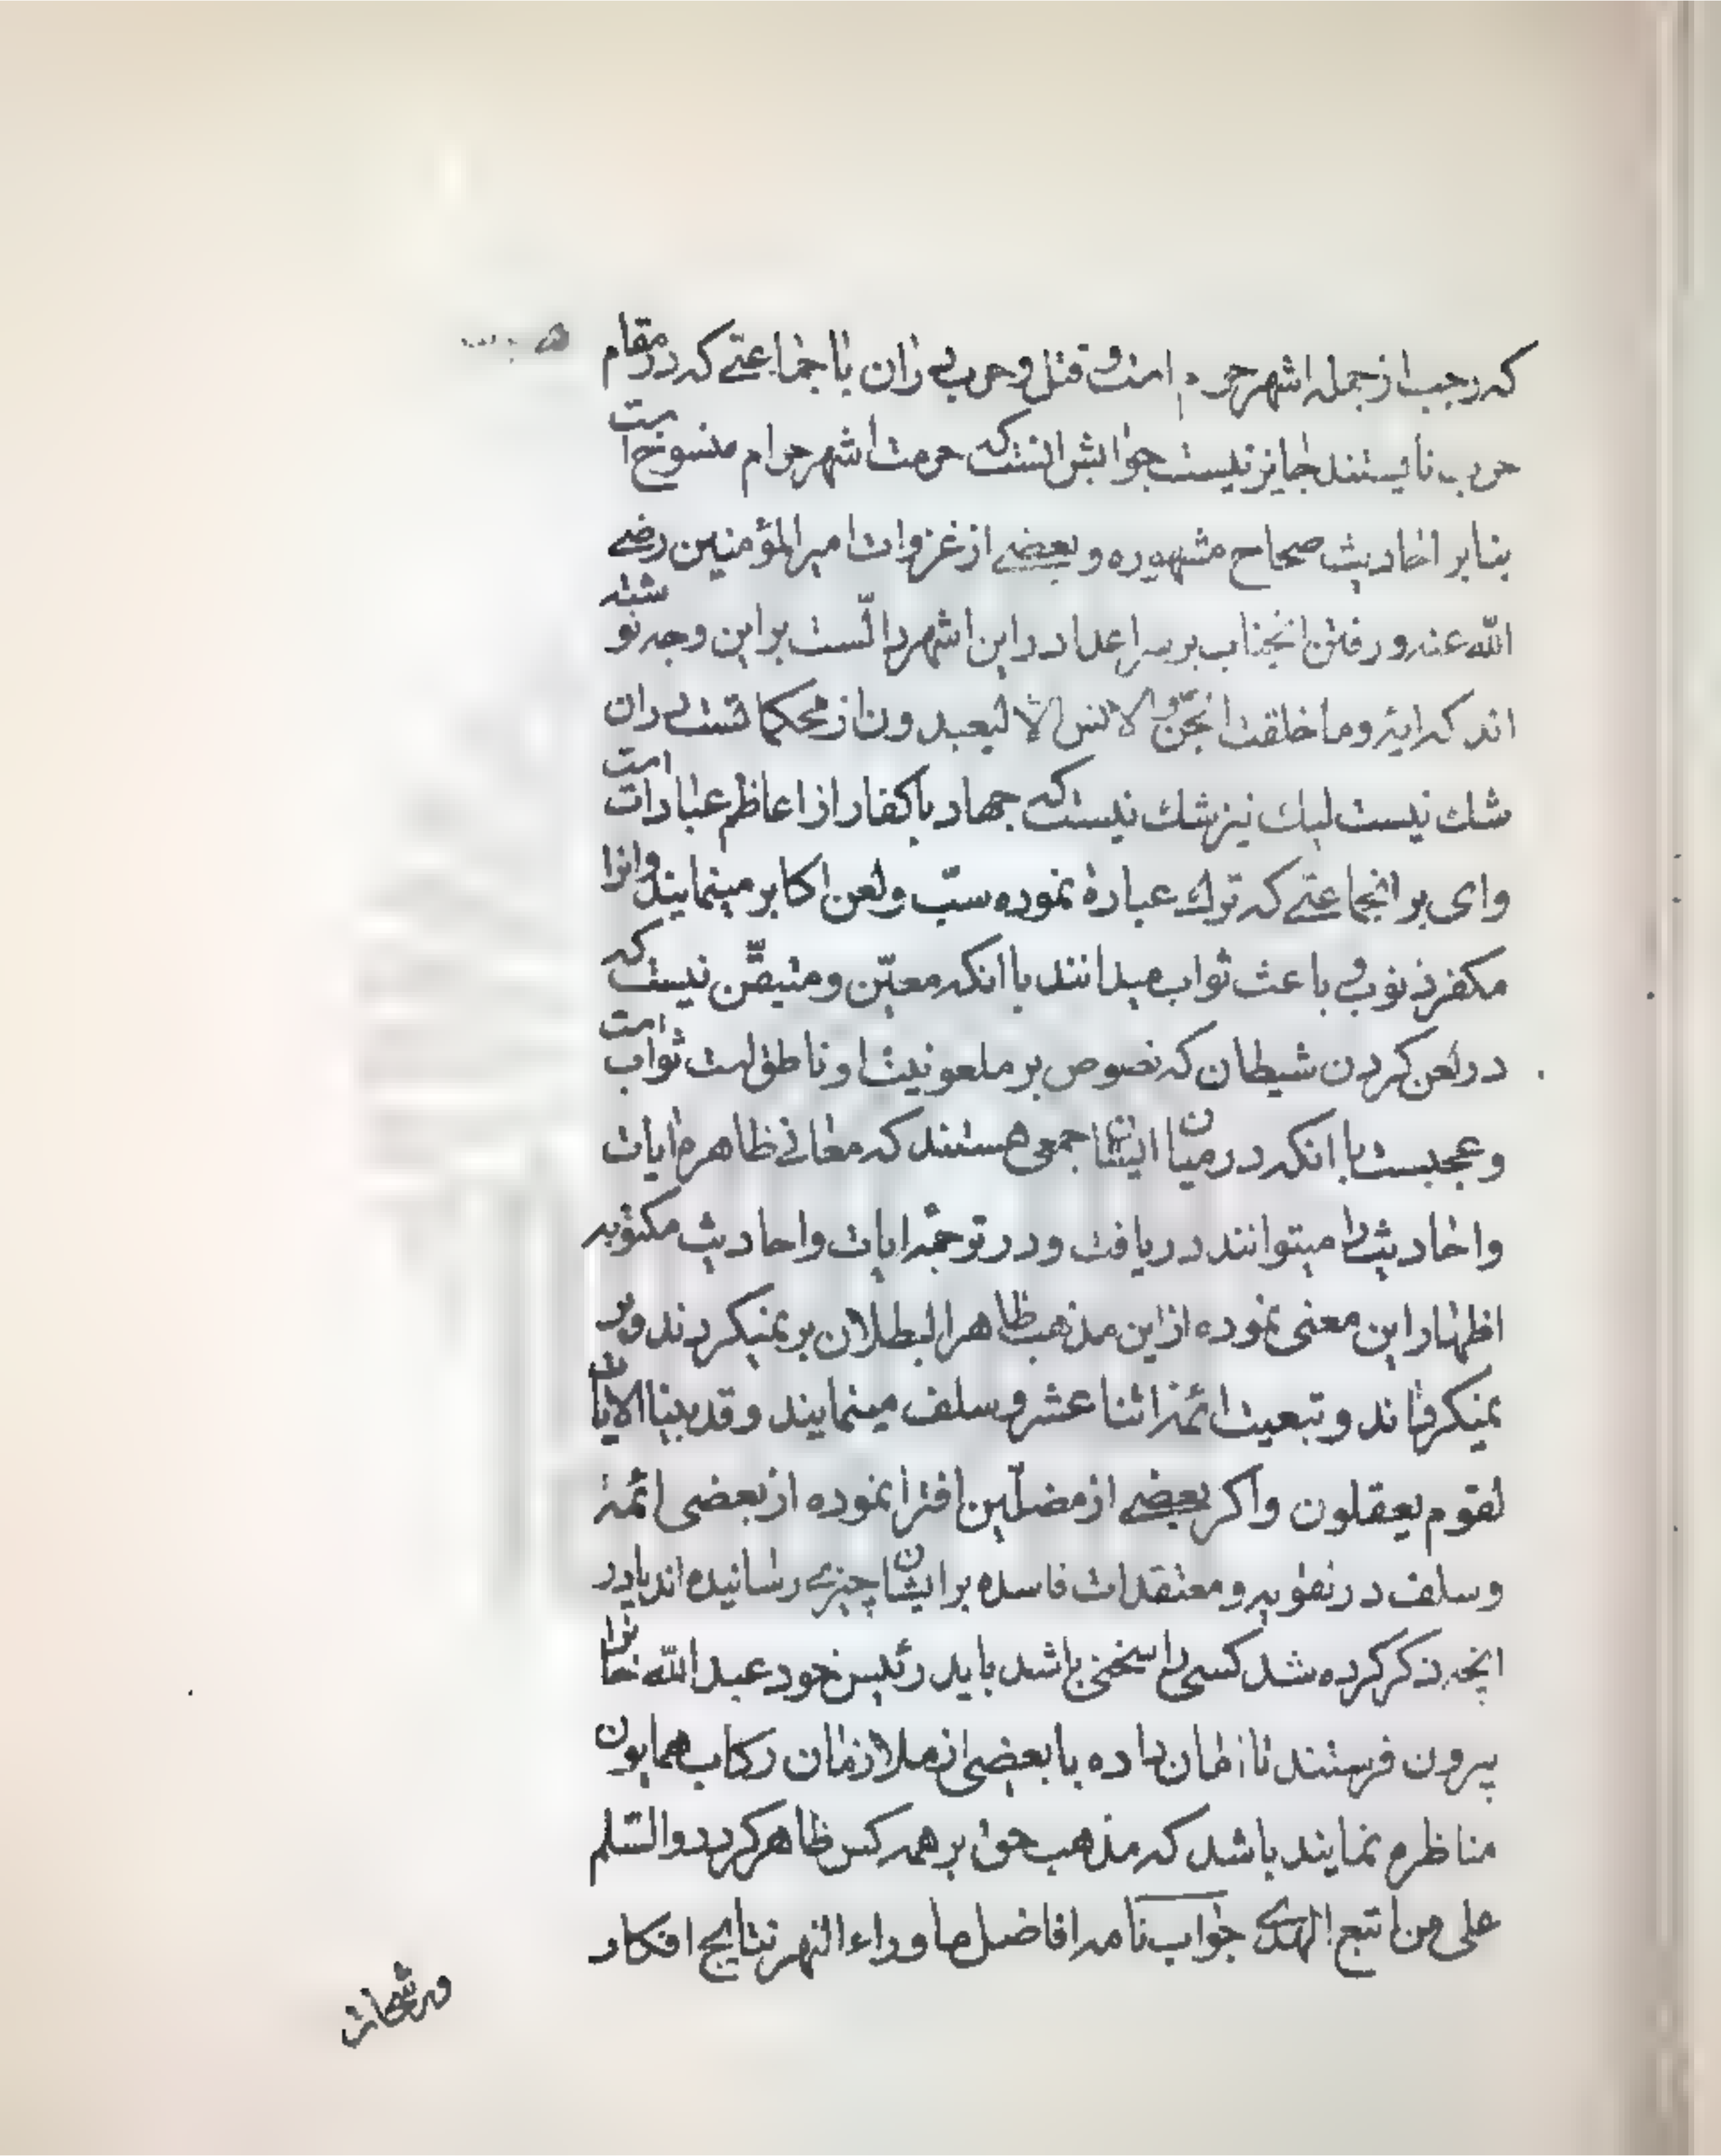 که رجب از جمله اشهر حرم است و قتل و حرب در ان با جماعتی که در مقام
حرب نایستند جایز نیست جوابش انست که حرمت اشهر حرام منسوخ است
بنابر احادیث صحاح مشهوره و بعضی از غزوات امیرالمؤمنین رضی
الله عنه و رفتن انجناب بر سر اعدا در این اشهر دالّست بر این وجه نوشته
اند که ایه وما خلقت الجنّ والانس الا لیعبدون از محکماتست در ان
شك نیست لیك نیز شك نیست که جهاد با کفار از اعاظم عبادات است
وای بر انجماعتی که ترك عبادة نموده سبّ ولعن اکابر مینمایند وانرا
مکفر ذنوب و باعث ثواب میدانند با انکه معیّن و متیقّن نیست که
در لعن کردن شیطان که نصوص بر ملعونیت او ناطق است ثواب است
و عجبست با انکه در میان ایشان جمعی هستند که معانی ظاهره ایات
واحادیث را میتوانند دریافت و در ترجمه ایات واحادیث مکتوبه
اظهار این معنی نموده از این مذهب ظاهر البطلان بر نمیکردند و بر
نمیکردانند و تبعیت ائمه اثنا عشر و سلف مینمایند و قد بینا الایات
لقوم یعقلون واکر بعضی از مضلّین افترا نموده از بعضی ائمهٔ
وسلف در تقویه و معتقدات فاسده بر ایشان چیزی رسانیده اند یا در
انچه ذکر کرده شد کسی را سخنی باشد باید رئیس خود عبدالله خان را
بیرون فرستند تا امان داده با بعضی از ملازمان رکاب همایون
مناظره نمایند باشد که مذهب حق بر همه کس ظاهر کردد والسّلم
علی من اتبع الهدی جواب نامه افاضل ماوراءالنهر نتایج افکار
ورشحات